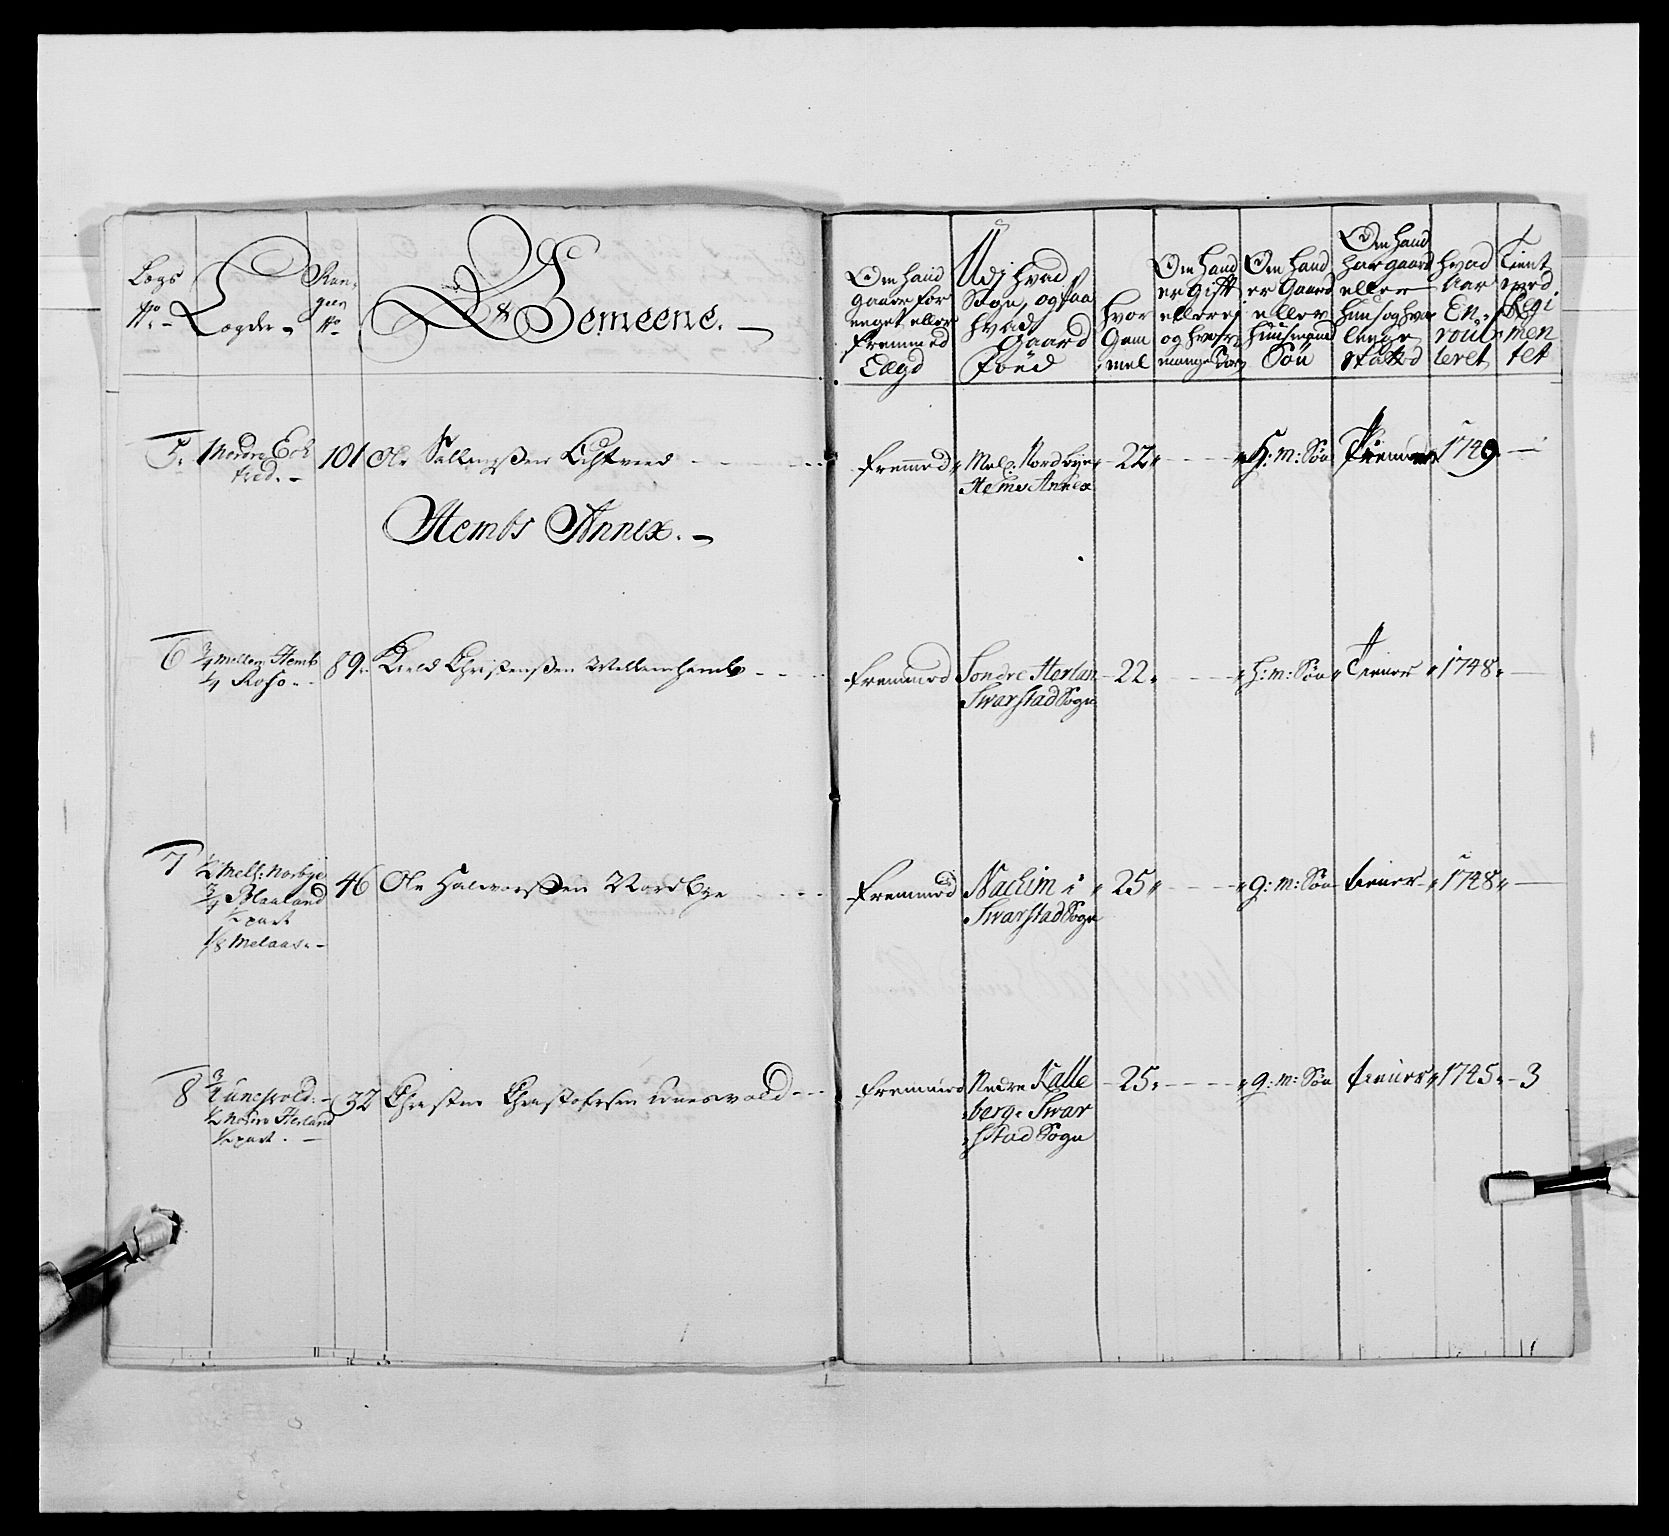 Legs No: Lægder
Ran-
geer
No
De Gemeene.
Om hand
gaar for
eeget eller
fremmed
Lægd
Udj hvad
Sogn, og paa
hvad
Gaard
Föed
hvor
Gam
mel
Om hand
er gift
eller ej
og hvor
mange Børn
Om hand
er Gaard
eller
huusmand
Søn
Om hand
har gaard
eller
huus og hvor
lenge
hvad
Aar
En-
roul-
leret
Tient
ved
Regi
men
tet
5. Nordre Eck
tved.
101 Ole Echtved
fremmed Mel: Nordbye
Hems Annex
22 H: m: Søn Tiener 1749.
Hembs Annex.
6 3/4 Mellem Hemb
1/4 Roso
89. Kield Christensen Mellemhemb
fremmed Sondre Herlan
Svarstad Sogn
22 h: m: Søn Tiener 1748.
7 1/2 Mell: Norbye
3/4 Blaaland
1/2 part
1/8 Melaas.
46 Ole Halvorsen Nordbye
fremmed Naclim i
Svarstad Sogn
25 g: m: Søn tiener 1748.
8 3/4 Lunesvold.
1/2 Nordre Herland
1/2 part.
32 Christen Christofersen Lunesvold
fremmed Nedre Kalle
berg. Svar
stad Sogn
25. g: m: Søn tiener 1745. 3